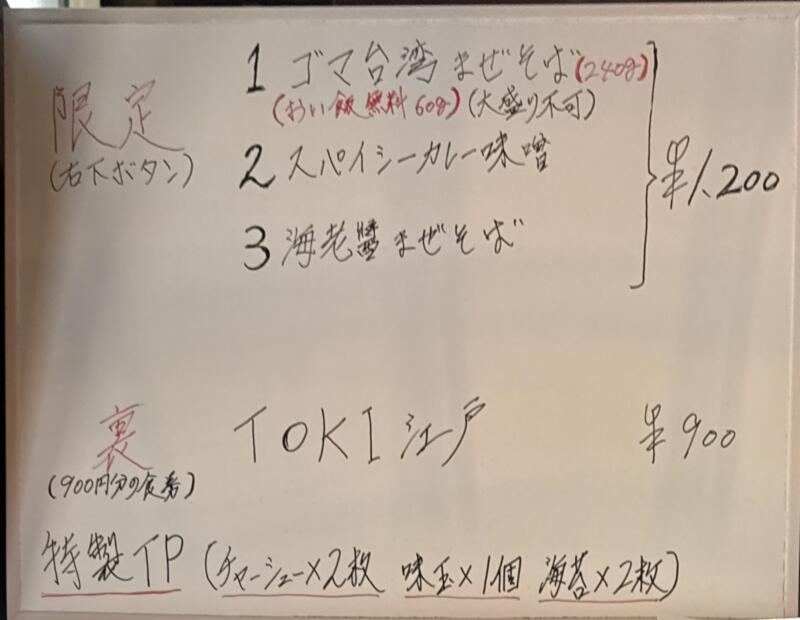 限定
(右下ボタン)
1 ゴマ台湾まぜそば(240g)
(おい飯無料60g)(大盛り不可)
2 スパイシーカレー味噌
3 海老醬まぜそば
半1,200
裏
(900円分の食券)
TOKI江戸
半900
特製TP (チャーシュー×2枚 味玉×1個 海苔×2枚)